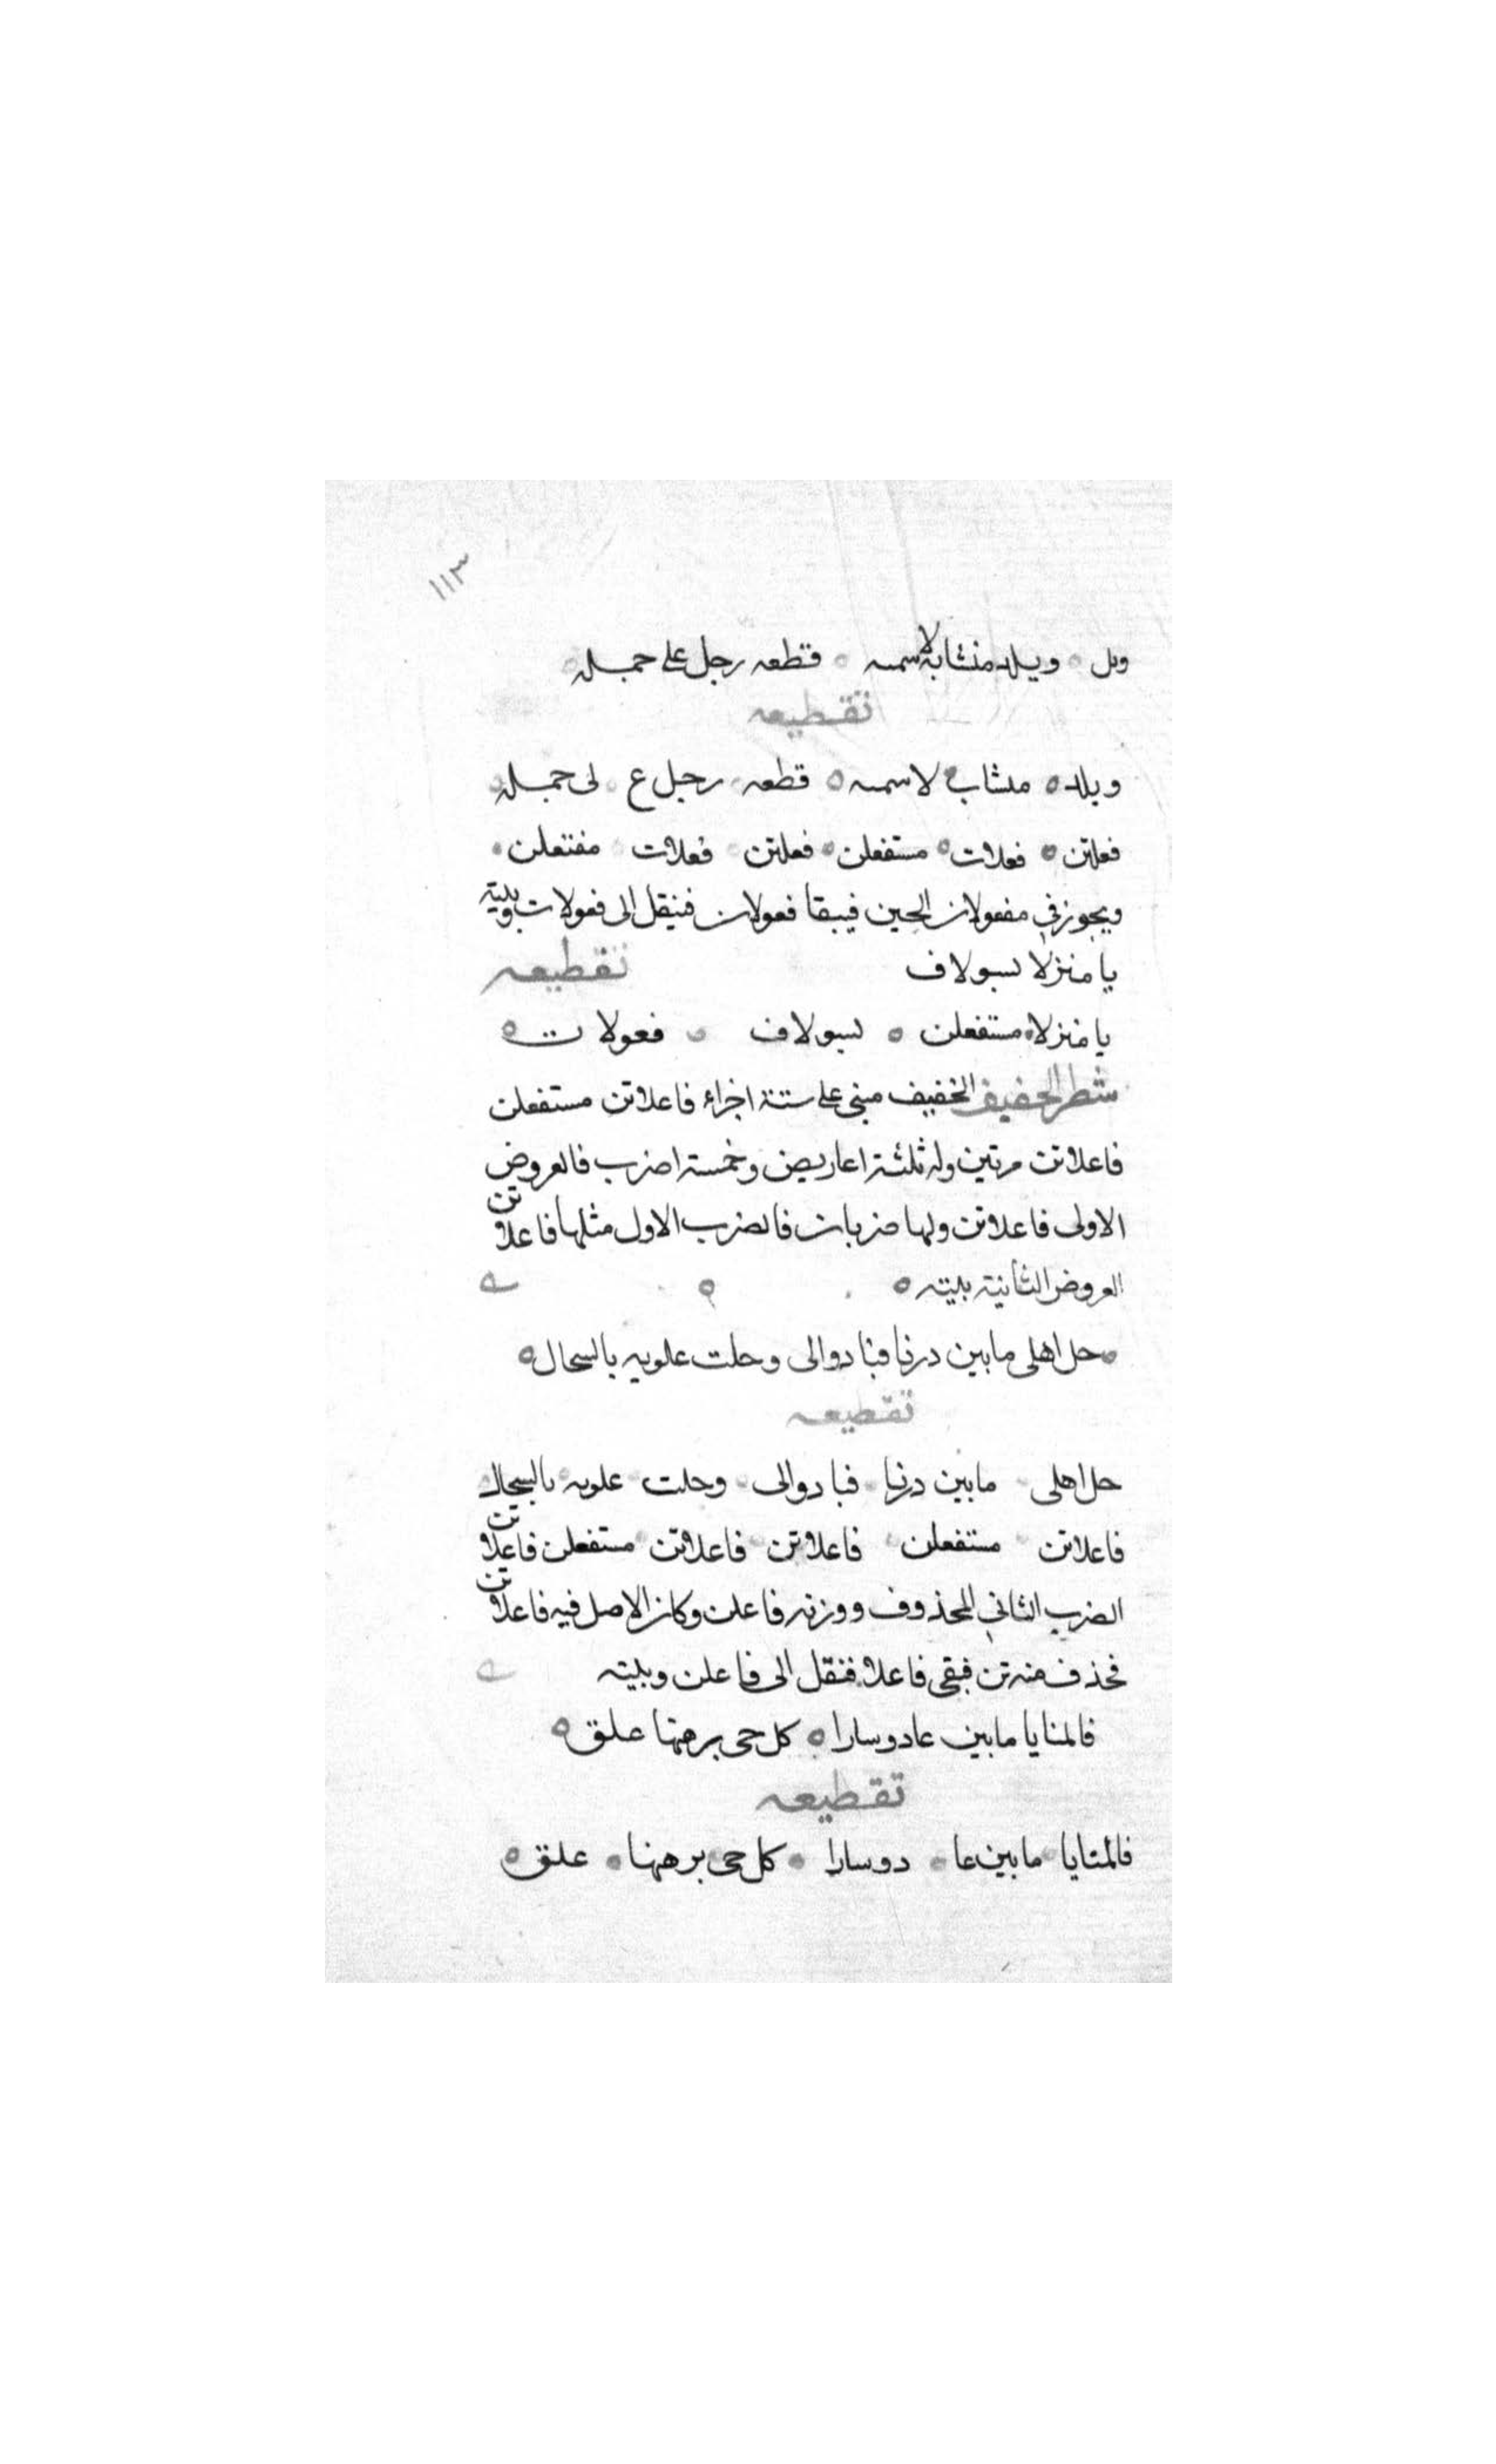 ١١٣
وبل ٥ وبلد متشابه الاسمه ٥ قطعه رجل على جمله ٥
تقطيعه
وبلد ٥ متشابه لاسمه ٥ قطعه رجل ع لى جمله
فعلتن ٥ فعلات ٥ مستفعلن ٥ فعلتن فعلات مفتعلن
ويجوز في مفعولات الخبن فيبقا فعولات فينقل الى فعولات وبيته
يا منزلا بسولاف تقطيعه
يا منزلا مستفعلن ٥ بسولاف فعولات ٥
شطر الخفيف الخفيف مبنى على ستة اجزاء فاعلاتن مستفعلن
فاعلاتن مرتين وله ثلثة اعاريض وخمسة اضرب فالعروض
الاولى فاعلاتن ولها ضربان فالضرب الاول مثلها فاعلاتن
العروض الثانية بيته ٥
حل اهلى ما بين درنا فبادوالى وحلت علويه بالسحال ٥
تقطيعه
حل اهلى ما بين درنا فبادوالى وحلت علويه بالسحال
فاعلاتن مستفعلن فاعلاتن فاعلاتن مستفعلن فاعلاتن
الضرب الثاني المحذوف ووزنه فاعلن وكان الاصل فيه فاعلاتن
فحذف منه تن فبقى فاعلا فنقل الى فاعلن وبيته
فالمنايا ما بين غاد وسارا ٥ كل حى برهنها علق ٥
تقطيعه
فالمنايا ما بين عا دوسارا ٥ كل حى برهنها ٥ علق ٥